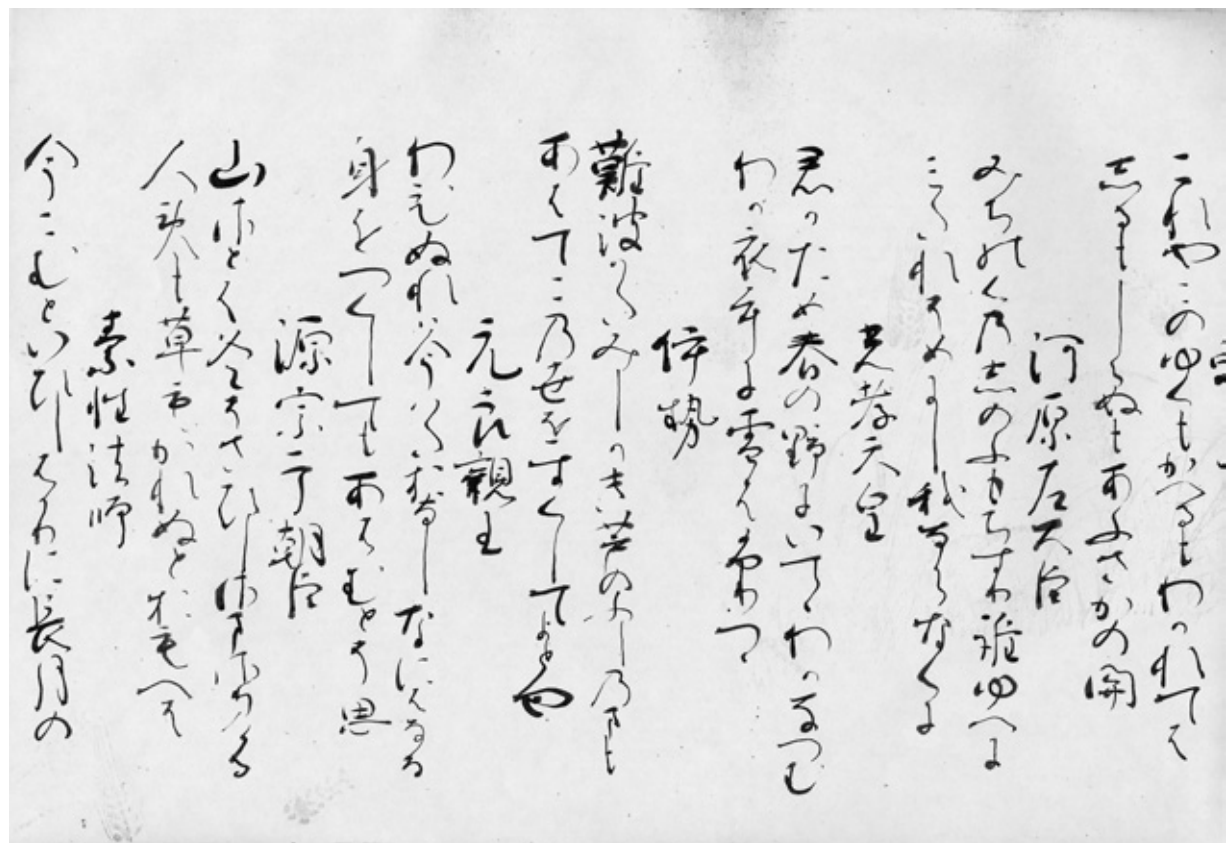 これやこのゆくもかへるもわかれては
志るもしらぬもあふさかの関
河原左大臣
みちのくの志のふもちすり誰ゆへに
みたれそめにし我ならなくに
光孝天皇
君かため春の野にいてゝわかなつむ
わか衣手に雪はふりつゝ
伊勢
難波かたみしかき芦のふしのまも
あはてこの世をすくしてよとや
元良親王
わひぬれは今はたおなしなにはなる
身をつくしてもあはむとそ思
源宗于朝臣
山さとは冬そさひしさまさりける
人めも草もかれぬとおもへは
素性法師
今こむといひしはかりに長月の